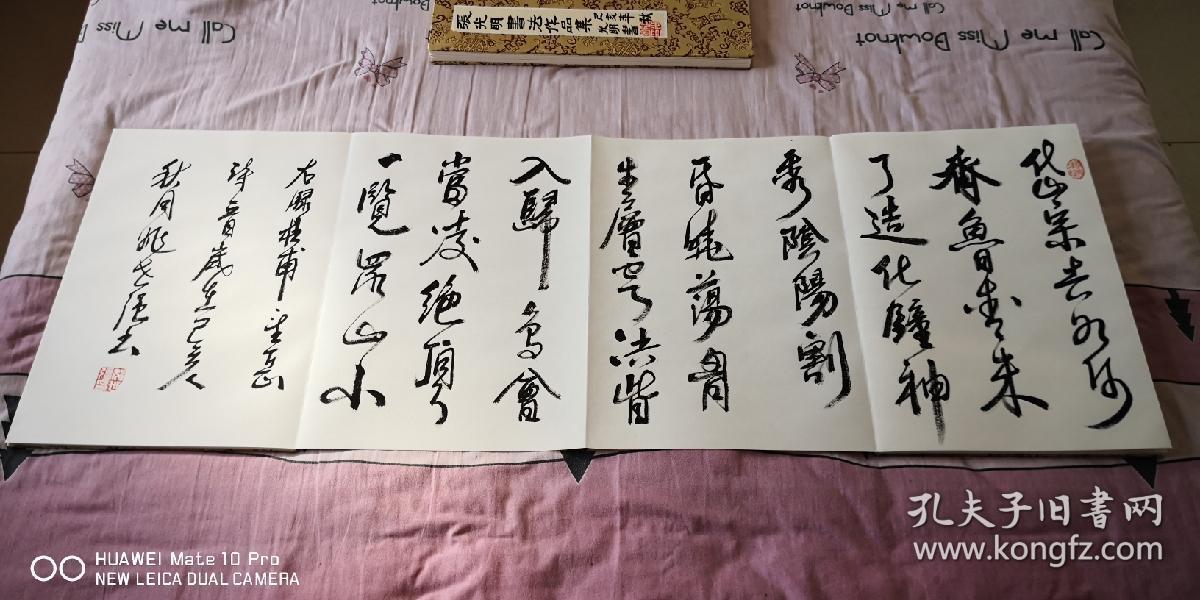 Call me Miss Dowknot
Call me Miss Dowknot
張光明書法作品集 己亥年秋 光明書
岱宗夫如何
齊魯青未
了造化鍾神
秀陰陽割
昏曉蕩胸
生層雲決眥
入歸鳥會
當凌絕頂
一覽眾山小
右錄杜甫望岳
詩一首歲在己亥
秋月
孔夫子旧书网
www.kongfz.com
HUAWEI Mate 10 Pro
NEW LEICA DUAL CAMERA